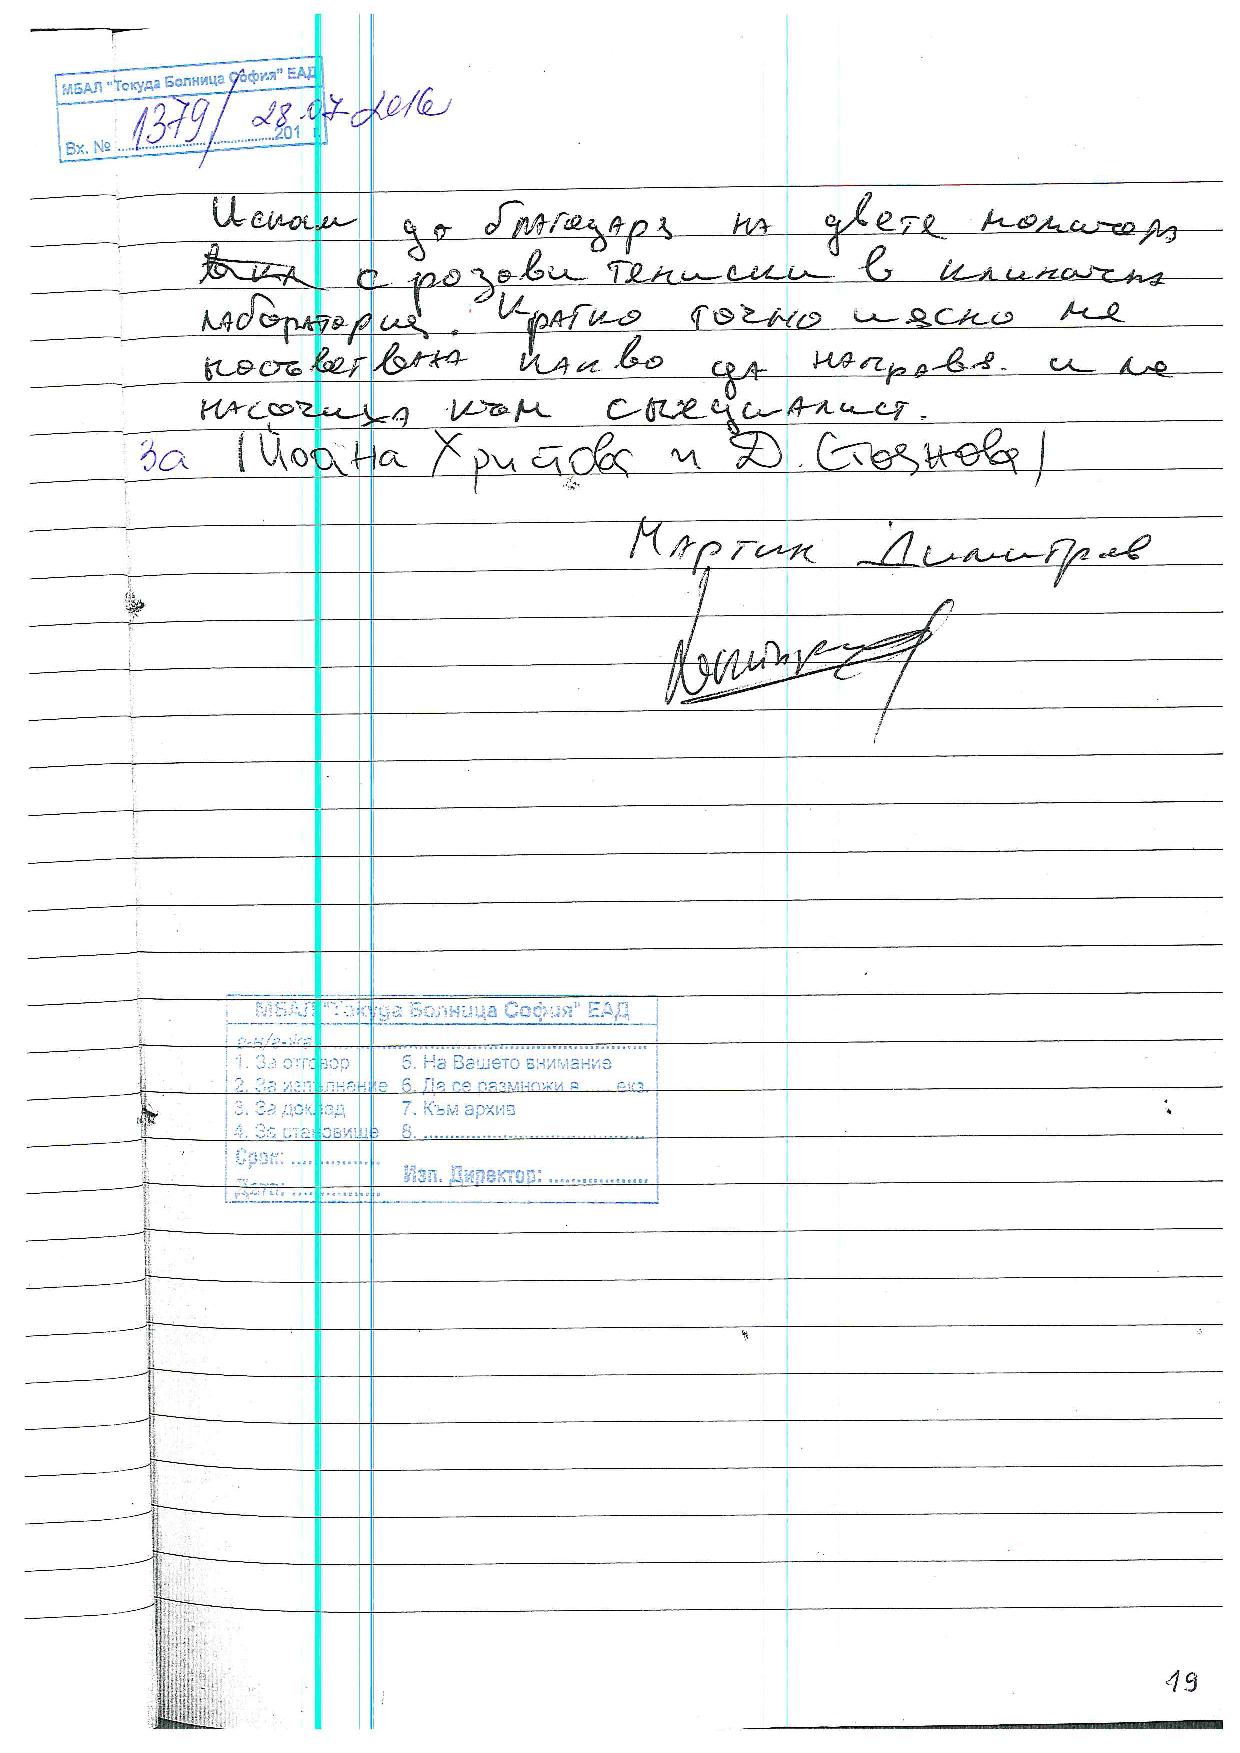 МБАЛ "Токуда Болница София" ЕАД
Вх. № 1379/ 28.07.2016
201 г.
Искам да благодаря на двете момичета
с розови тениски в клинична
лаборатория. Кратко точно и ясно ме
посъветваха какво да направя. и ме
насочиха към специалист.
За /Йоана Христова и Д. Стоянова/
Мартин Димитров
МБАЛ "Токуда Болница София" ЕАД
1. За отговор 5. На Вашето внимание
2. За изпълнение 6. Да се размножи в ..... екз.
3. За доклад 7. Към архив
4. За становище 8. ......................................
Срок: ...............
Изп. Директор: .................
Дата: ...............
19